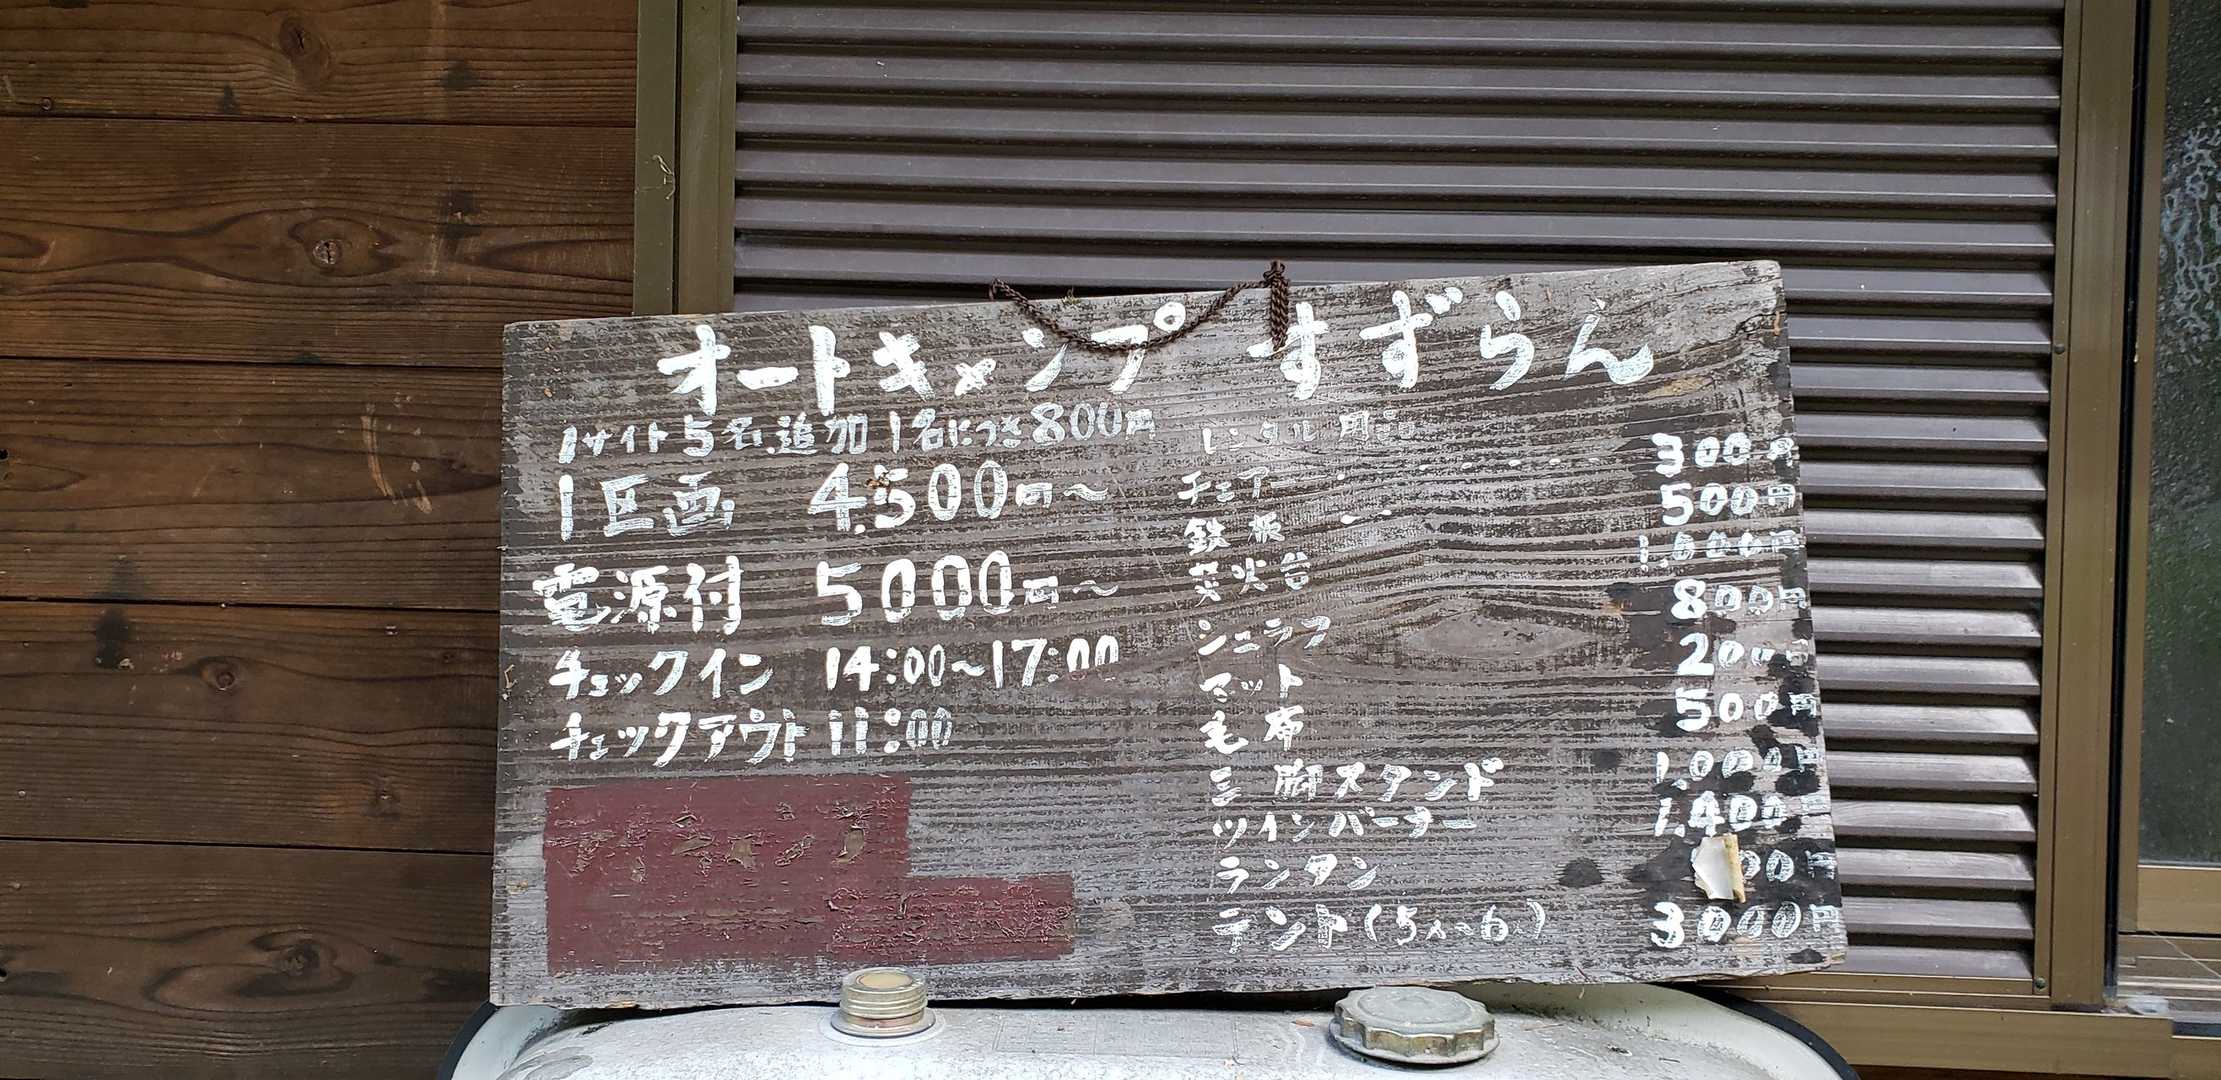 オートキャンプ すずらん
1サイト5名追加1名につき800円
1区画 4,500円～
電源付 5000円～
チェックイン 14:00～17:00
チェックアウト 11:00
レンタル用品
チェア 300円
鉄板 500円
焚火台 1,000円
シュラフ 800円
マット 200円
毛布 500円
三脚スタンド 1,000円
ツインバーナー 1,400
ランタン 00円
テント(5人～6人) 3000円